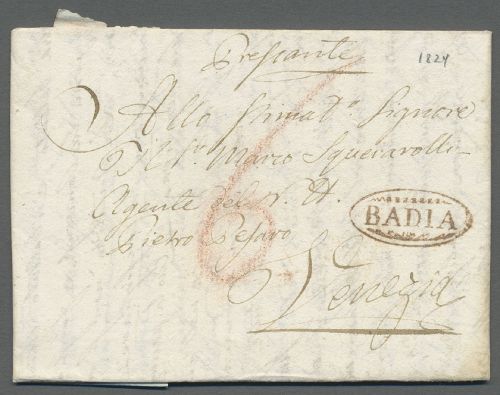 Pressante
1824
Allo Stimat.º Signore
Il S.r Marco Squerarolli
Agente del N. H.
Pietro Pesaro
Venezia
BADIA
6